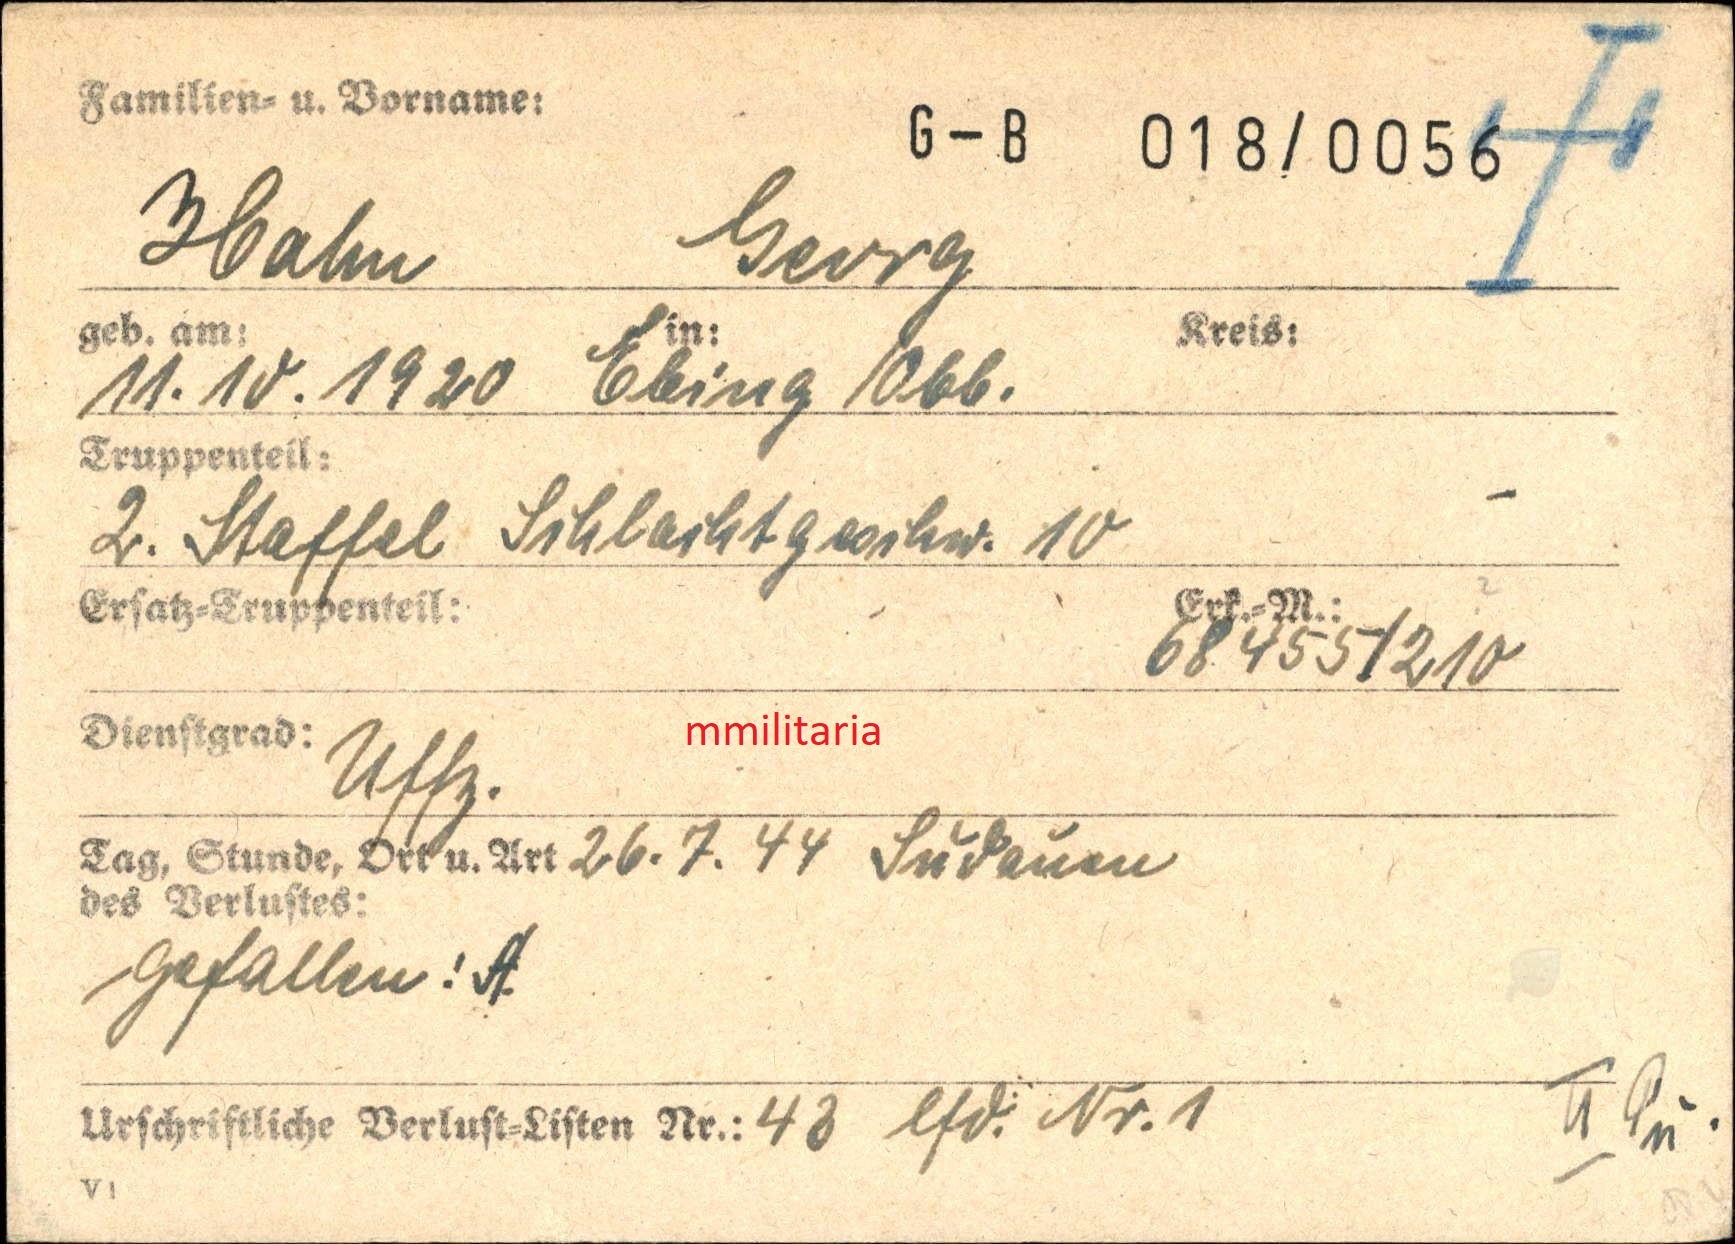 Familien- u. Vorname:
G-B 018/0056
Hahn Georg
geb. am: in: Kreis:
11.10.1920 Ebing /Obb.
Truppenteil:
2. Staffel Schlachtgeschw. 10
Ersatz-Truppenteil: Erk.-M.:
68455/210
Dienstgrad: Uffz.
mmilitaria
Tag, Stunde, Ort u. Art 26.7.44 Sudauen
des Verlustes:
gefallen! A.
Urschriftliche Verlust-Listen Nr.: 43 lfd. Nr. 1
V1